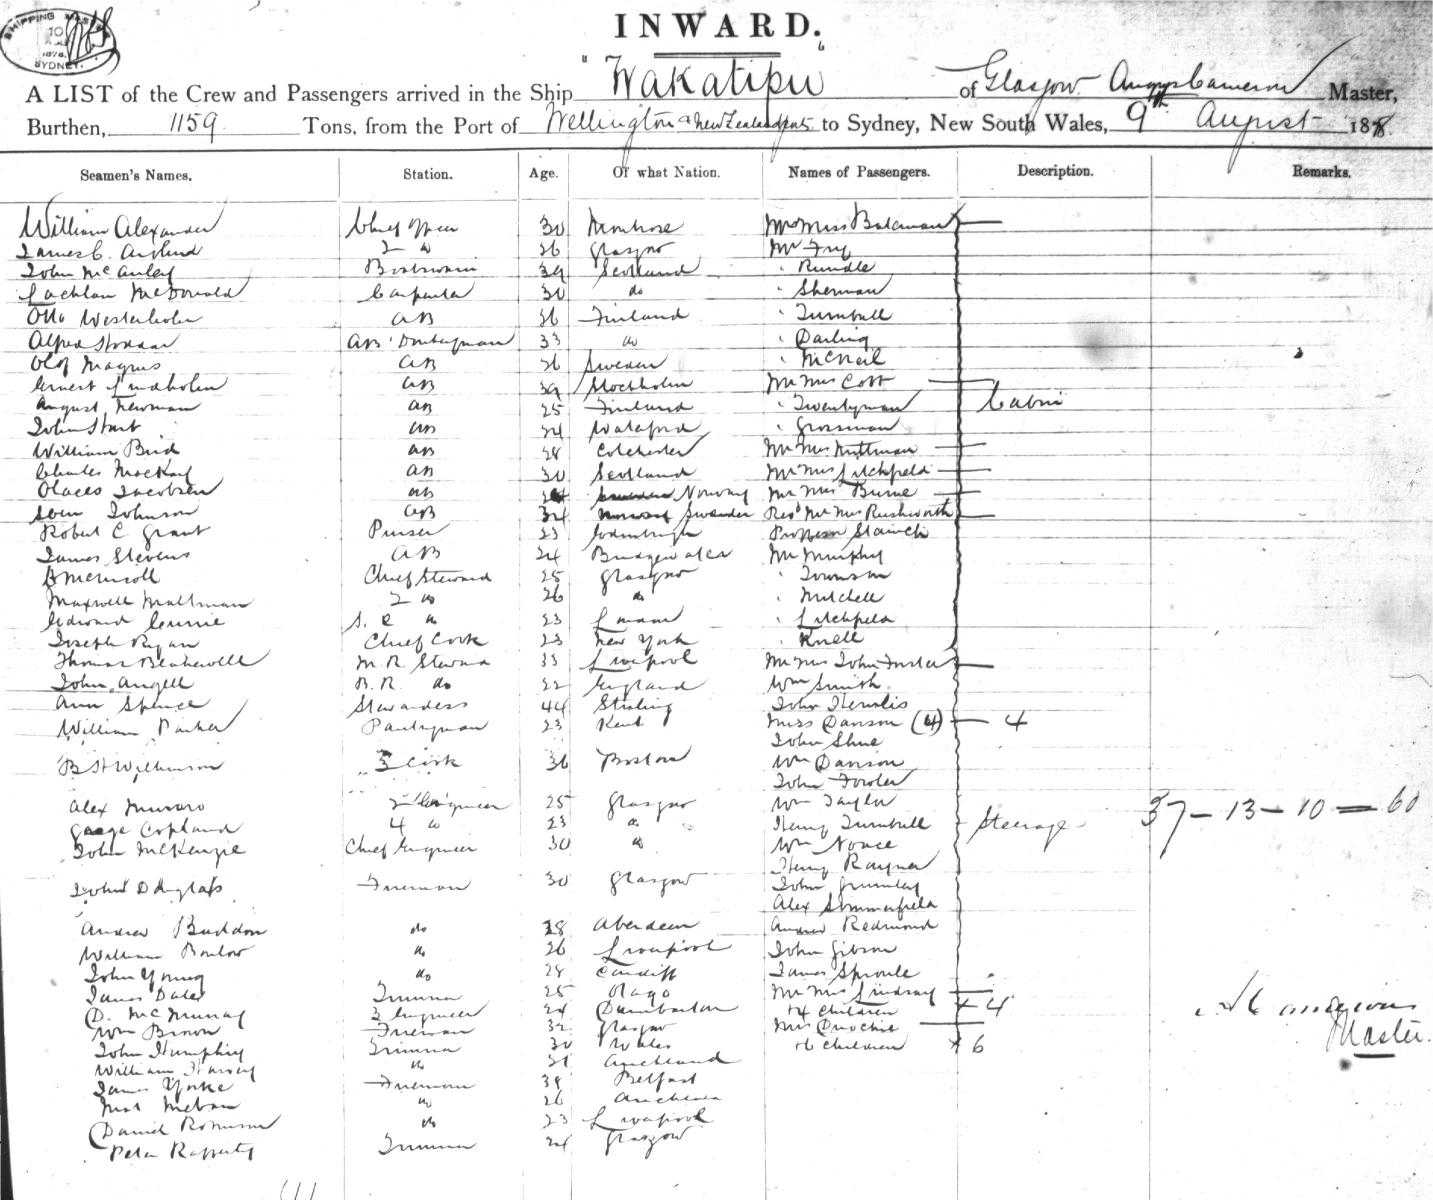 SHIPPING MASTER
10
1878
SYDNEY.
INWARD.
A LIST of the Crew and Passengers arrived in the Ship "Wakatipu" of Glasgow Angus Cameron Master,
Burthen, 1159 Tons, from the Port of Wellington & New Zealand ports to Sydney, New South Wales, 9th August 1878
Seamen's Names. Station. Age. Of what Nation. Names of Passengers. Description. Remarks.
William Alexander Chief Officer 30 Montrose Mr Miss Bateman
James C. 2 do 26 Glasgow Mr Fry
John McAuley Boatswain 39 Scotland " Rundle
Lachlan McDonald Carpenter 30 do " Sherman
Otto Westerholm AB 36 Finland " Turnbull
Alfred AB 33 do " Darling
Olof Magnus AB 26 Sweden " McNeil
Ernest Lindholm AB 39 Stockholm Mr Mrs Cott
August Newman AB 25 Finland " Twentyman Cabin
John Hart AB 24 Waterford " Grossman
William Bird AB 28 Colchester Mr Mrs
Charles Mackay AB 30 Scotland Mr Mrs Litchfield
Jacobsen AB Norway Mr Mrs Burne
Sven Johnson AB 34 Sweden Revd Mr Mrs Rushworth
Robert C Grant Purser 23 Edinburgh Professor
James Stevens AB 24 Bridgewater Mr Murphy
Chief Steward 25 Glasgow " Townson
Maxwell Maltman 2 do 26 do " Mitchell
Edward Currie S. C do 23 " Litchfield
Joseph Ryan Chief Cook 23 New York " Knell
Thomas Blakewell M R Steward 33 Liverpool Mr Mrs John Foster
John Angell B. R. do 22 England Wm Smith
Ann Spence Stewardess 44 Stirling John
William Parker Pantryman 23 Kent Miss Dawson (4) 4
John Shue
B H Wilkinson 3 Cook 36 Boston Wm Dawson
John Fowler
Alex Munro 2 Engineer 25 Glasgow Wm Taylor
George Copland 4 do 23 do Henry Turnbull Steerage 37 - 13 - 10 = 60
John McKenzie Chief Engineer 30 do Wm
Henry Rayner
John Douglass Fireman 30 Glasgow John
Alex Sommerfield
Andrew Buddon do 38 Aberdeen Andrew Redmond
William Barlow do 26 Liverpool John Gibson
John Young do 28 Cardiff James Sproule
James Dates Trimmer 25 Otago Mr Mrs Lindsay
D. McMurray 3 Engineer 24 Dumbarton + 4 children + 4
Wm Brown Fireman 32 Glasgow Mrs
John Humphry Trimmer 30 Wales + 6 children + 6
William do 21 Auckland
James Yorke Fireman 39 Belfast
do 26
Daniel Robinson do 23 Liverpool
Peter Rafferty Trimmer 24 Glasgow
Master.